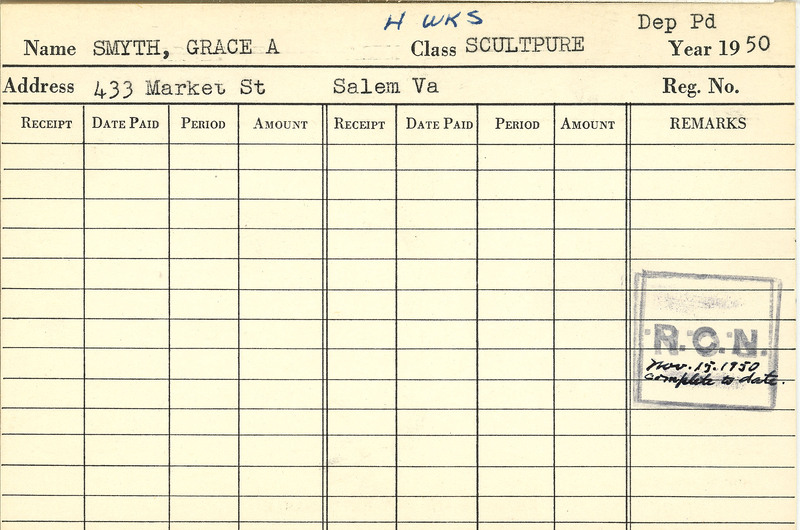 4 WKS Dep Pd
Name SMYTH, GRACE A Class SCULTPURE Year 1950
Address 433 Market St Salem Va Reg. No.
RECEIPT DATE PAID PERIOD AMOUNT RECEIPT DATE PAID PERIOD AMOUNT REMARKS
R.C.N.
Nov. 15. 1950
complete to date.